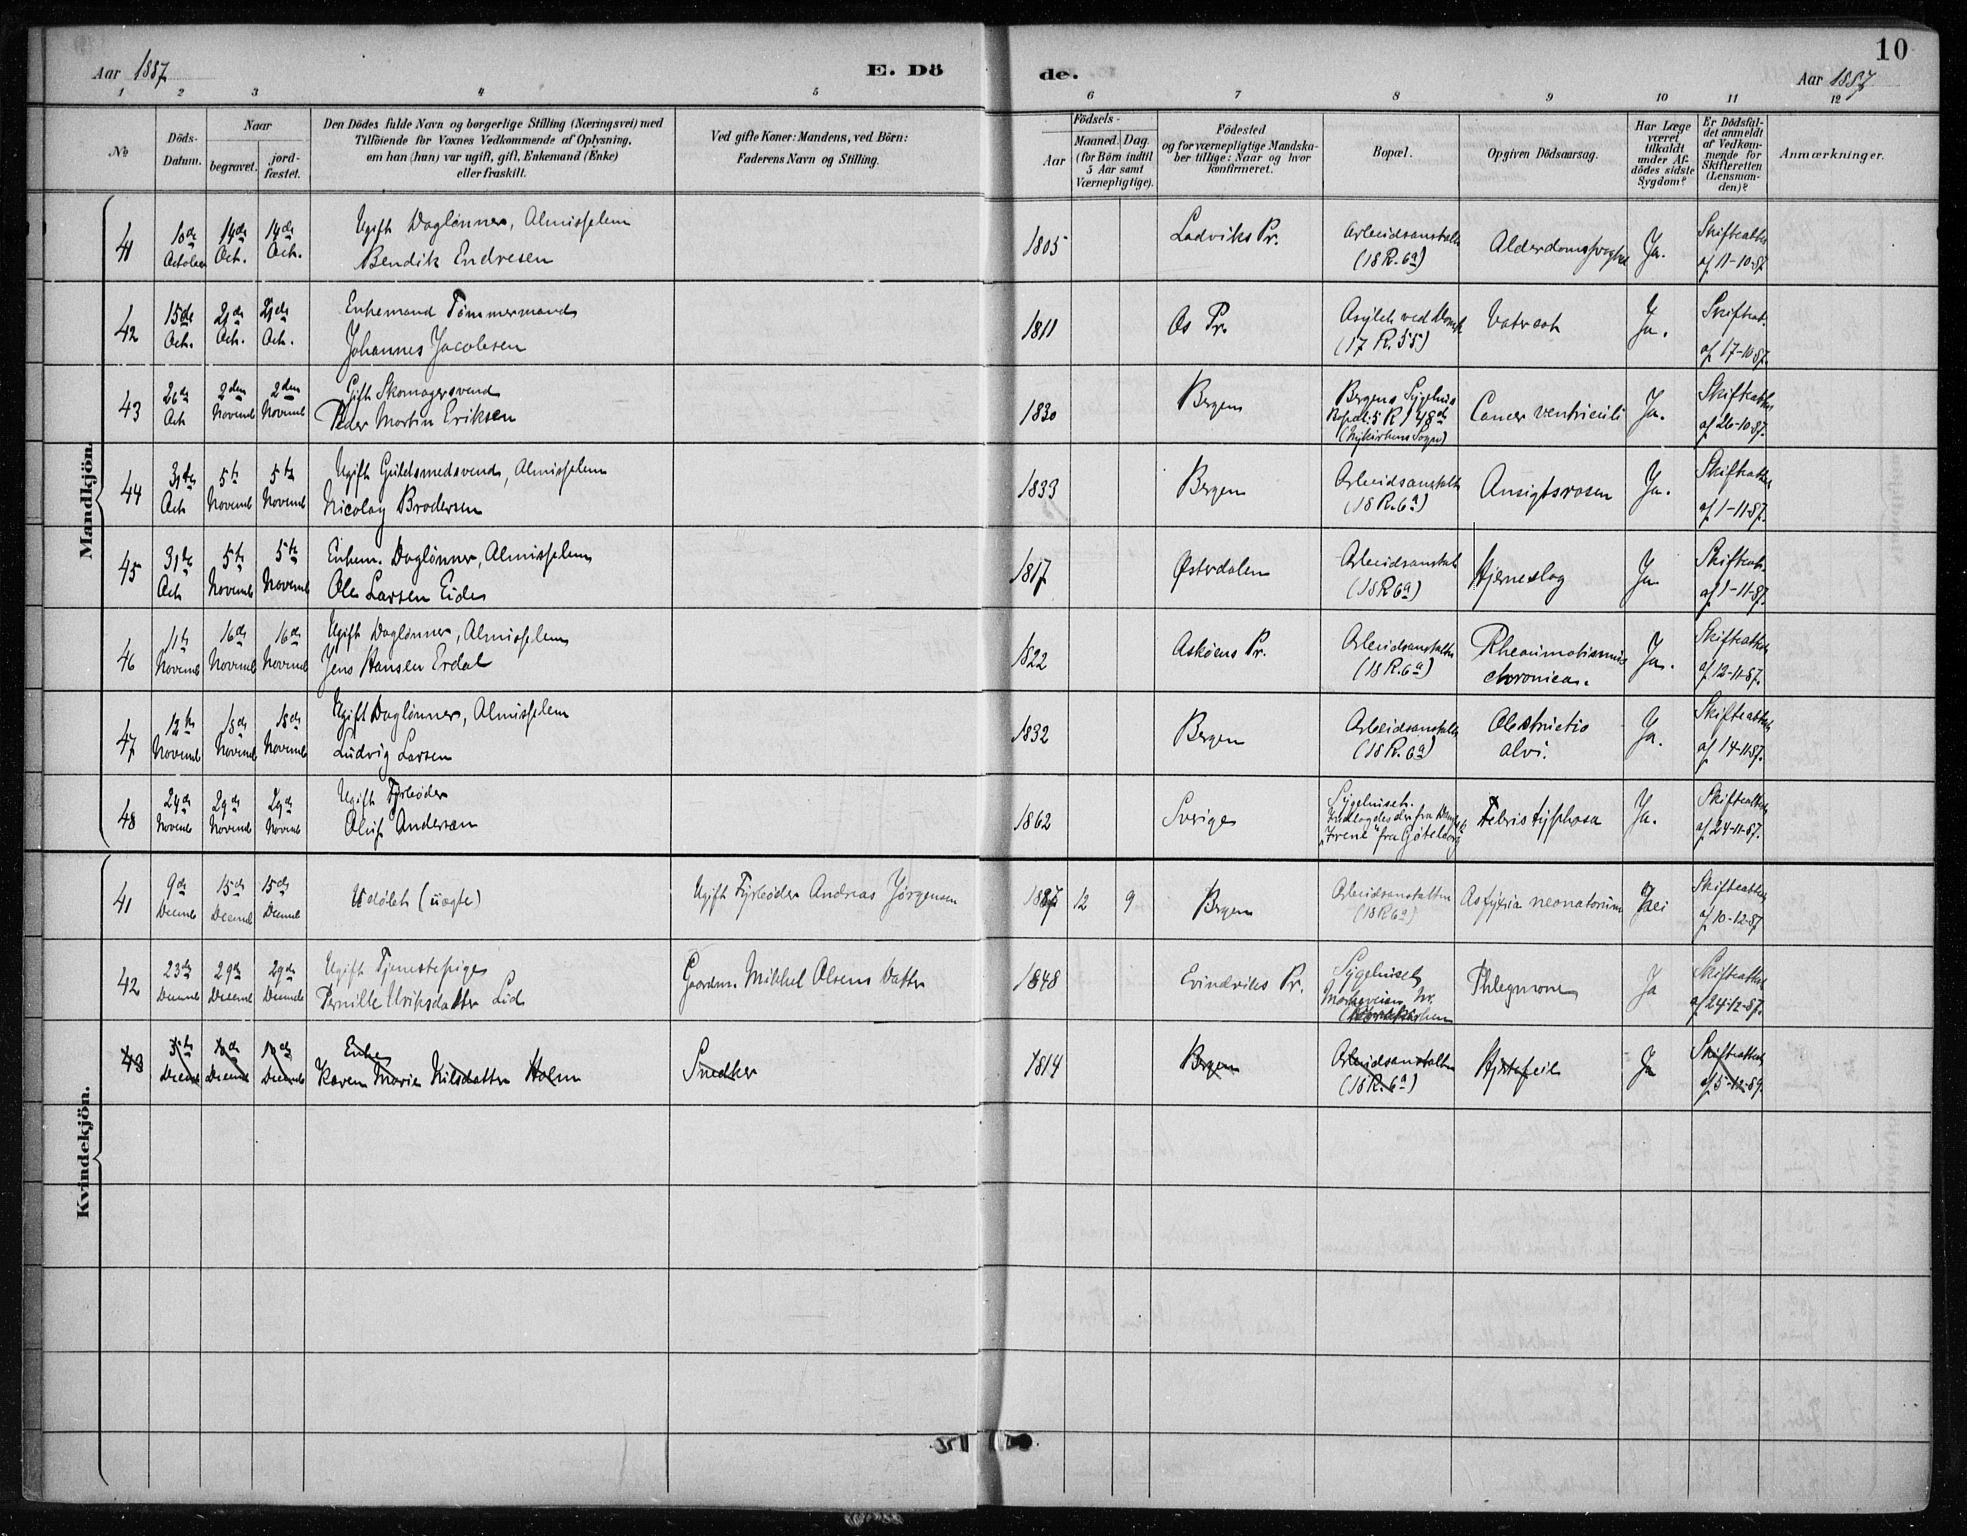 Aar 1887
E. Dö
de.
10
Aar 1887
1 2 3 4 5 6 7 8 9 10 11 12
No
Döds-
Datum.
Naar
begravet.
jord-
fæstet.
Den Dödes fulde Navn og borgerlige Stilling (Næringsvei) med
Tilföiende for Voxnes Vedkommende af Oplysning,
om han (hun) var ugift, gift, Enkemand (Enke)
eller fraskilt.
Ved gifte Koner: Mandens, ved Börn:
Faderens Navn og Stilling.
Födsels-
Aar
Maaned. Dag
(for Börn indtil
5 Aar samt
Værnepligtige).
Födested
og for værnepligtige Mandska-
ber tillige: Naar og hvor
konfirmeret.
Bopæl.
Opgiven Dödsaarsag.
Har Læge
været
tilkaldt
under Af-
dödes sidste
Sygdom?
Er Dödsfal-
det anmeldt
af Vedkom-
mende for
Skifteretten
(Lensman-
den)?
Anmærkninger.
Mandkjön.
41
10de
October
14de
Oct.
14de
Oct.
Ugift Daglönner, Almisselem
Bendik Endresen
1805
Ladviks Pr.
Arbeidsanstalten
(18 R. 6a)
Alderdomssvaghed
Ja.
Skifteattest
af 11-10-87
42
15de
Oct.
21de
Oct.
21de
Oct.
Enkemand Tömmermand
Johannes Jacobsen
1811
Os Pr.
Asylet ved
(17 R. 55)
Ja.
Skifteat.
af 17-10-87.
43
26de
Oct
2den
Novemb
2den
Novemb
Gift Skomagersvend
Peder Martin Eriksen
1830
Bergen
Bergens Sygehus
5 R 148d
(Nykirkens Sogn)
Cancer ventriculi
Ja.
Skifteattest
af 26-10-87.
44
31te
Oct
5te
Novemb
5te
Novemb
Ugift Guldsmedsvend, Almisselem
Nicolay Brodersen
1833
Bergen
Arbeidsanstalten
(18 R. 6a)
Ansigtsrosen
Ja.
Skifteattest
af 1-11-87.
45
31te
Oct
5te
Novemb
5te
Novemb
Enkem. Daglönner, Almisselem
Ole Larsen Eide
1817
Østerdalen
Arbeidsanstalt
(18 R 6a)
Hjerneslag
Ja
Skifteat.
af 1-11-87.
46
11te
Novemb
16de
Novemb
16de
Novemb
Ugift Daglönner, Almisselem
Jens Hansen Erdal
1822
Askøens Pr.
Arbeidsanstalten
(18 R. 6a)
Rheaumatismus
chronicus.
Ja.
Skifteattest
af 12-11-87.
47
12te
Novemb
18de
Novemb
18de
Novemb
Ugift Daglönner, Almisselem
Ludvig Larsen
1832
Bergen
Arbeidsanstalten
(18 R. 6a)
Obstructio
alvi.
Ja.
Skifteattest
af 14-11-87.
48
24de
Novemb
29de
Novemb
29de
Novemb
Ugift Fyrbøder
Oluf Andersen
1862
Sverige
Sygehuset.
Indlagdes der fra
"Irene" fra Göteborg
Febris typhosa
Ja.
Skifteattest
af 24-11-87.
Kvindekjön.
41
9de
Decemb
15de
Decemb
15de
Decemb
Udöbt (uægte)
Ugift Fyrbøder Andreas Jørgensen
1887 12 9
Bergen
Arbeidsanstalten
(18 R 6a)
Asfyxia neonatorum
Nei
Skifteattest
af 10-12-87
42
23de
Decemb
29de
Decemb
29de
Decemb
Ugift Tjenestepige
Pernille Lid
Gaardm. Mikkel Olsens Datter
1848
Evindviks Pr.
Sygehuset
Phlegmone
Ja
Skifteattest
af 24-12-87.
43
5te
Decemb
10de
Decemb
10de
Decemb
Enke
Karen Marie Nilsdatter Holm
Snedker
1814
Bergen
Arbeidsanstalten
(18 R. 6a)
Hjertefeil
Ja
Skifteattest
af 5-12-89.